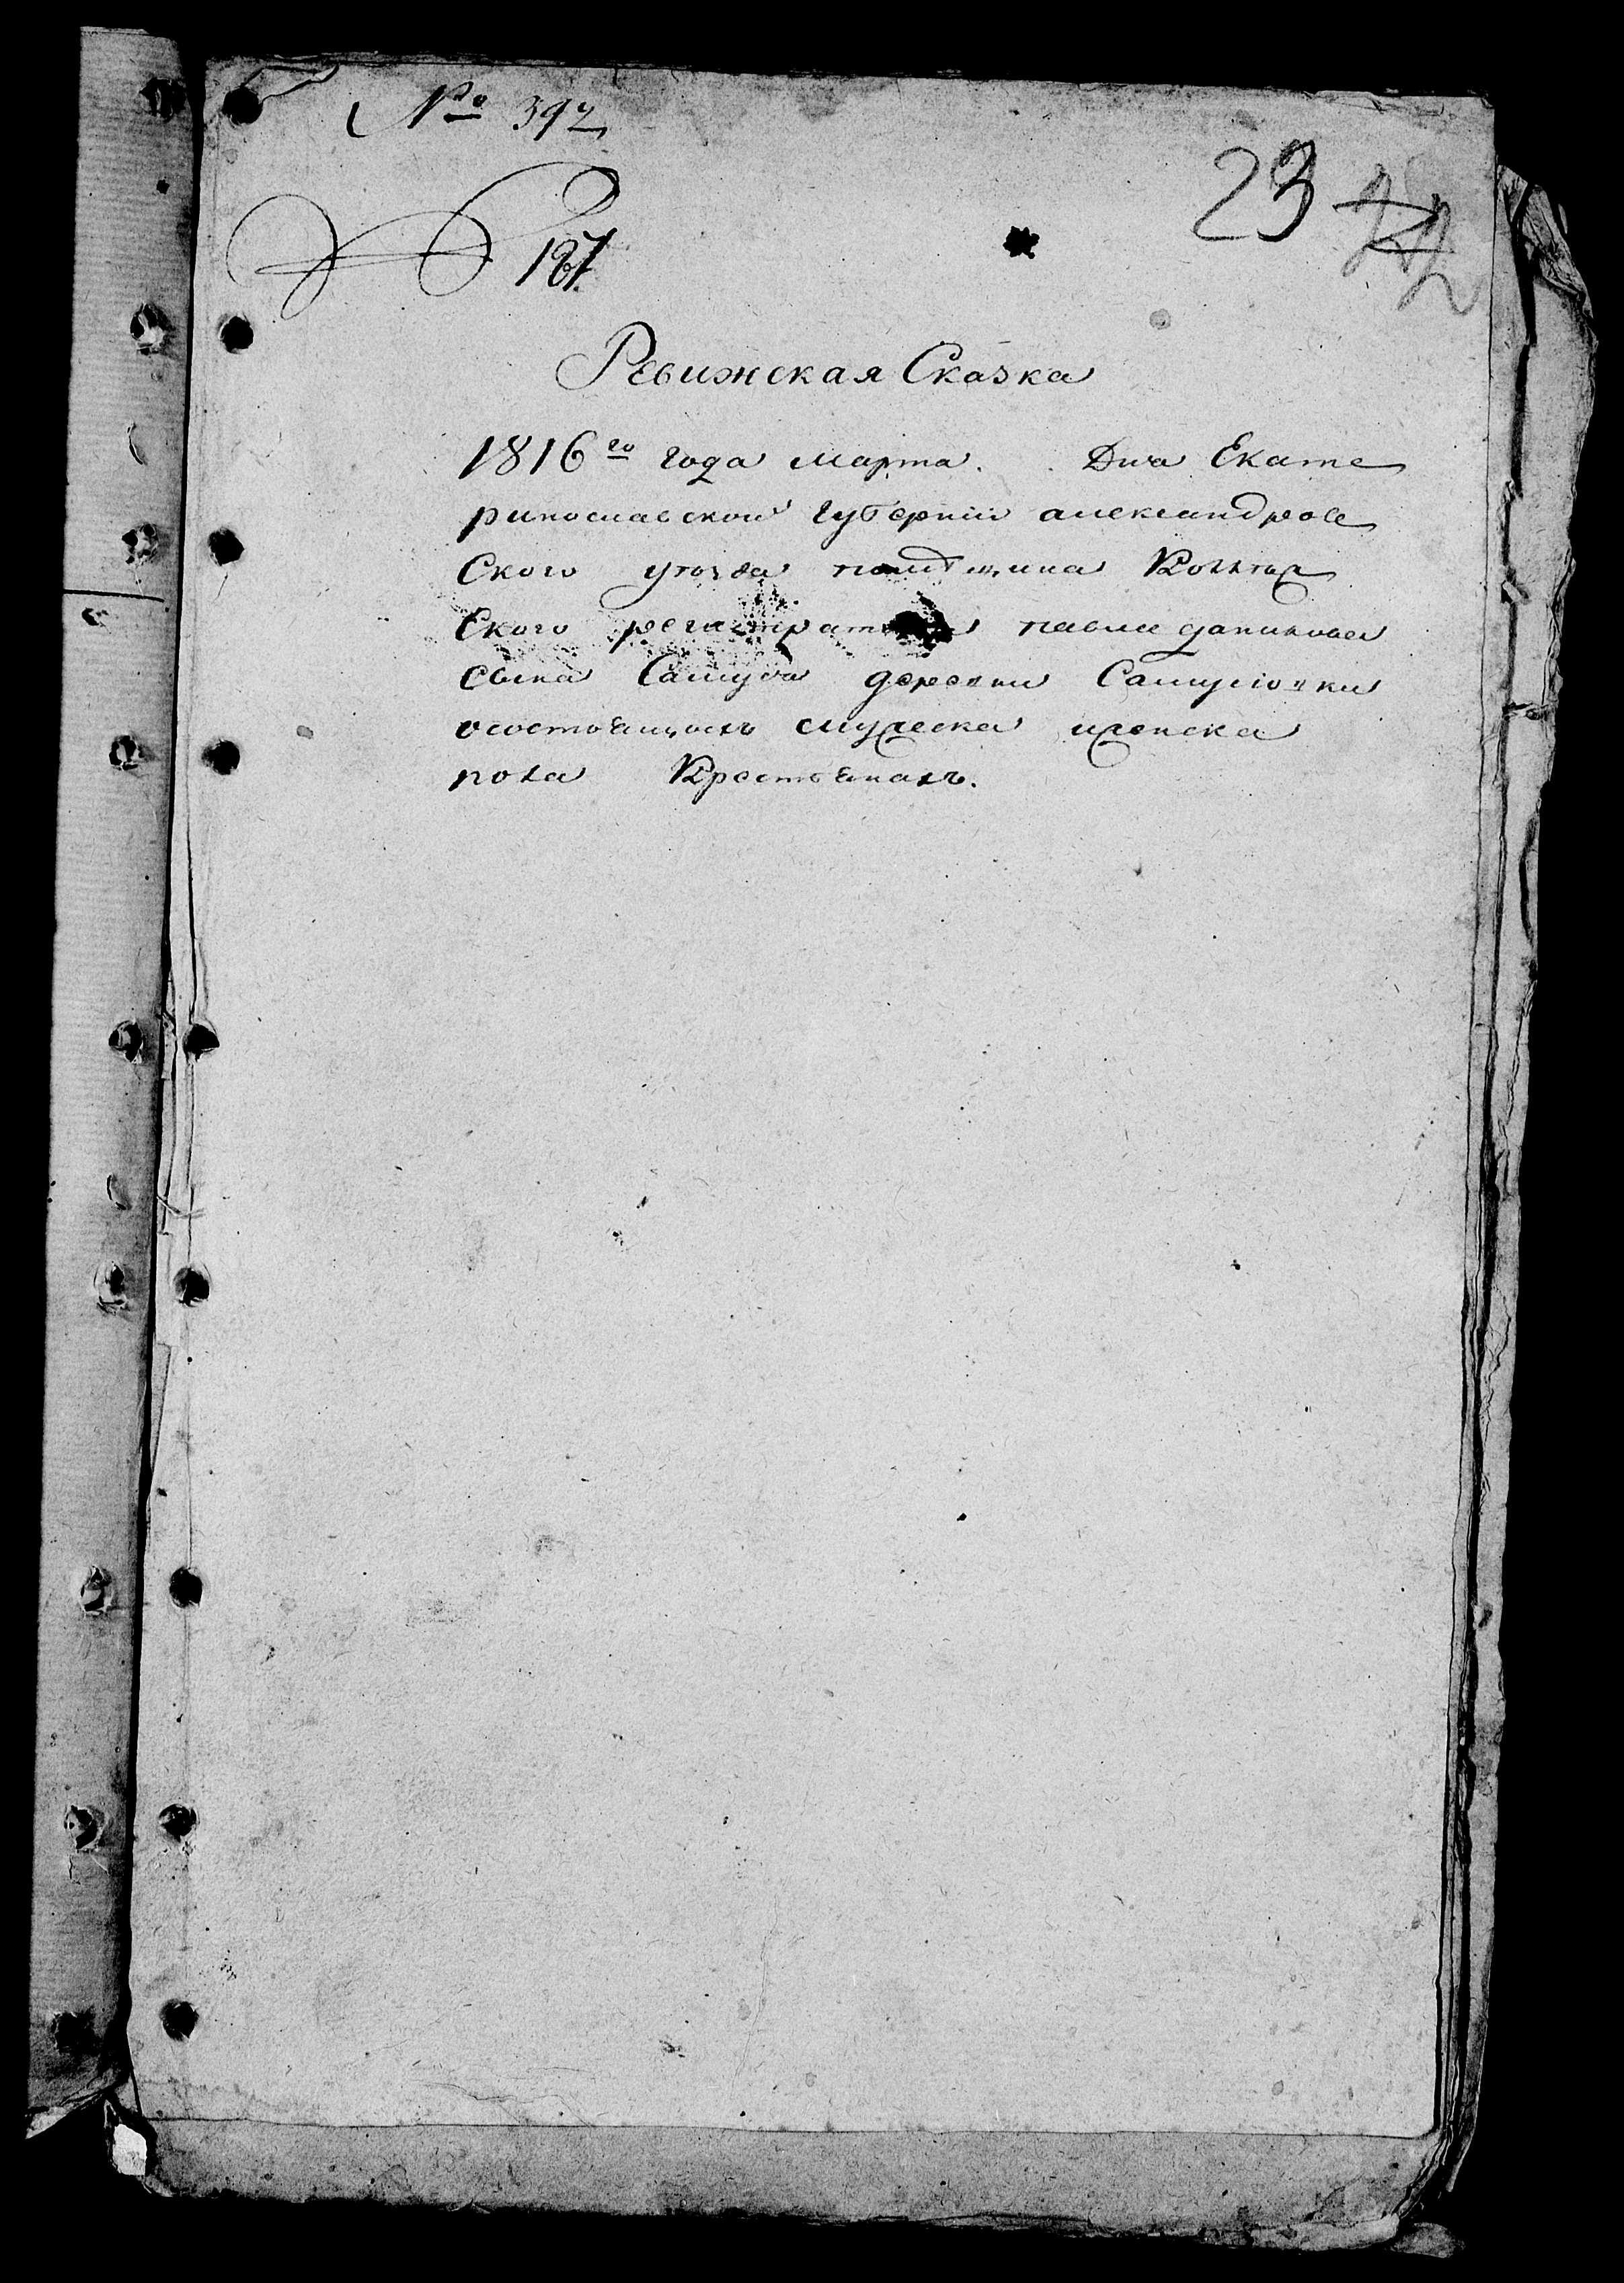 № 392
187.
23
Ревижская Сказка
1816го года марта. Дня Екате
ринославской губернии александров
Ского уезда помещика Коллеж
Ского регистратора павла данилова
сына Самуся деревни Самусювки
о состоящихъ мужеска иженска
пола Крестьянахъ.